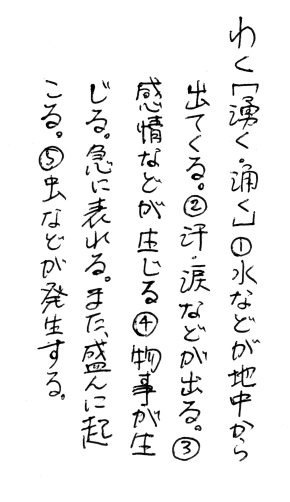 わく[湧く・涌く]①水などが地中から
出てくる。②汗・涙などが出る。③
感情などが生じる④物事が生
じる。急に表れる。また、盛んに起
こる。⑤虫などが発生する。